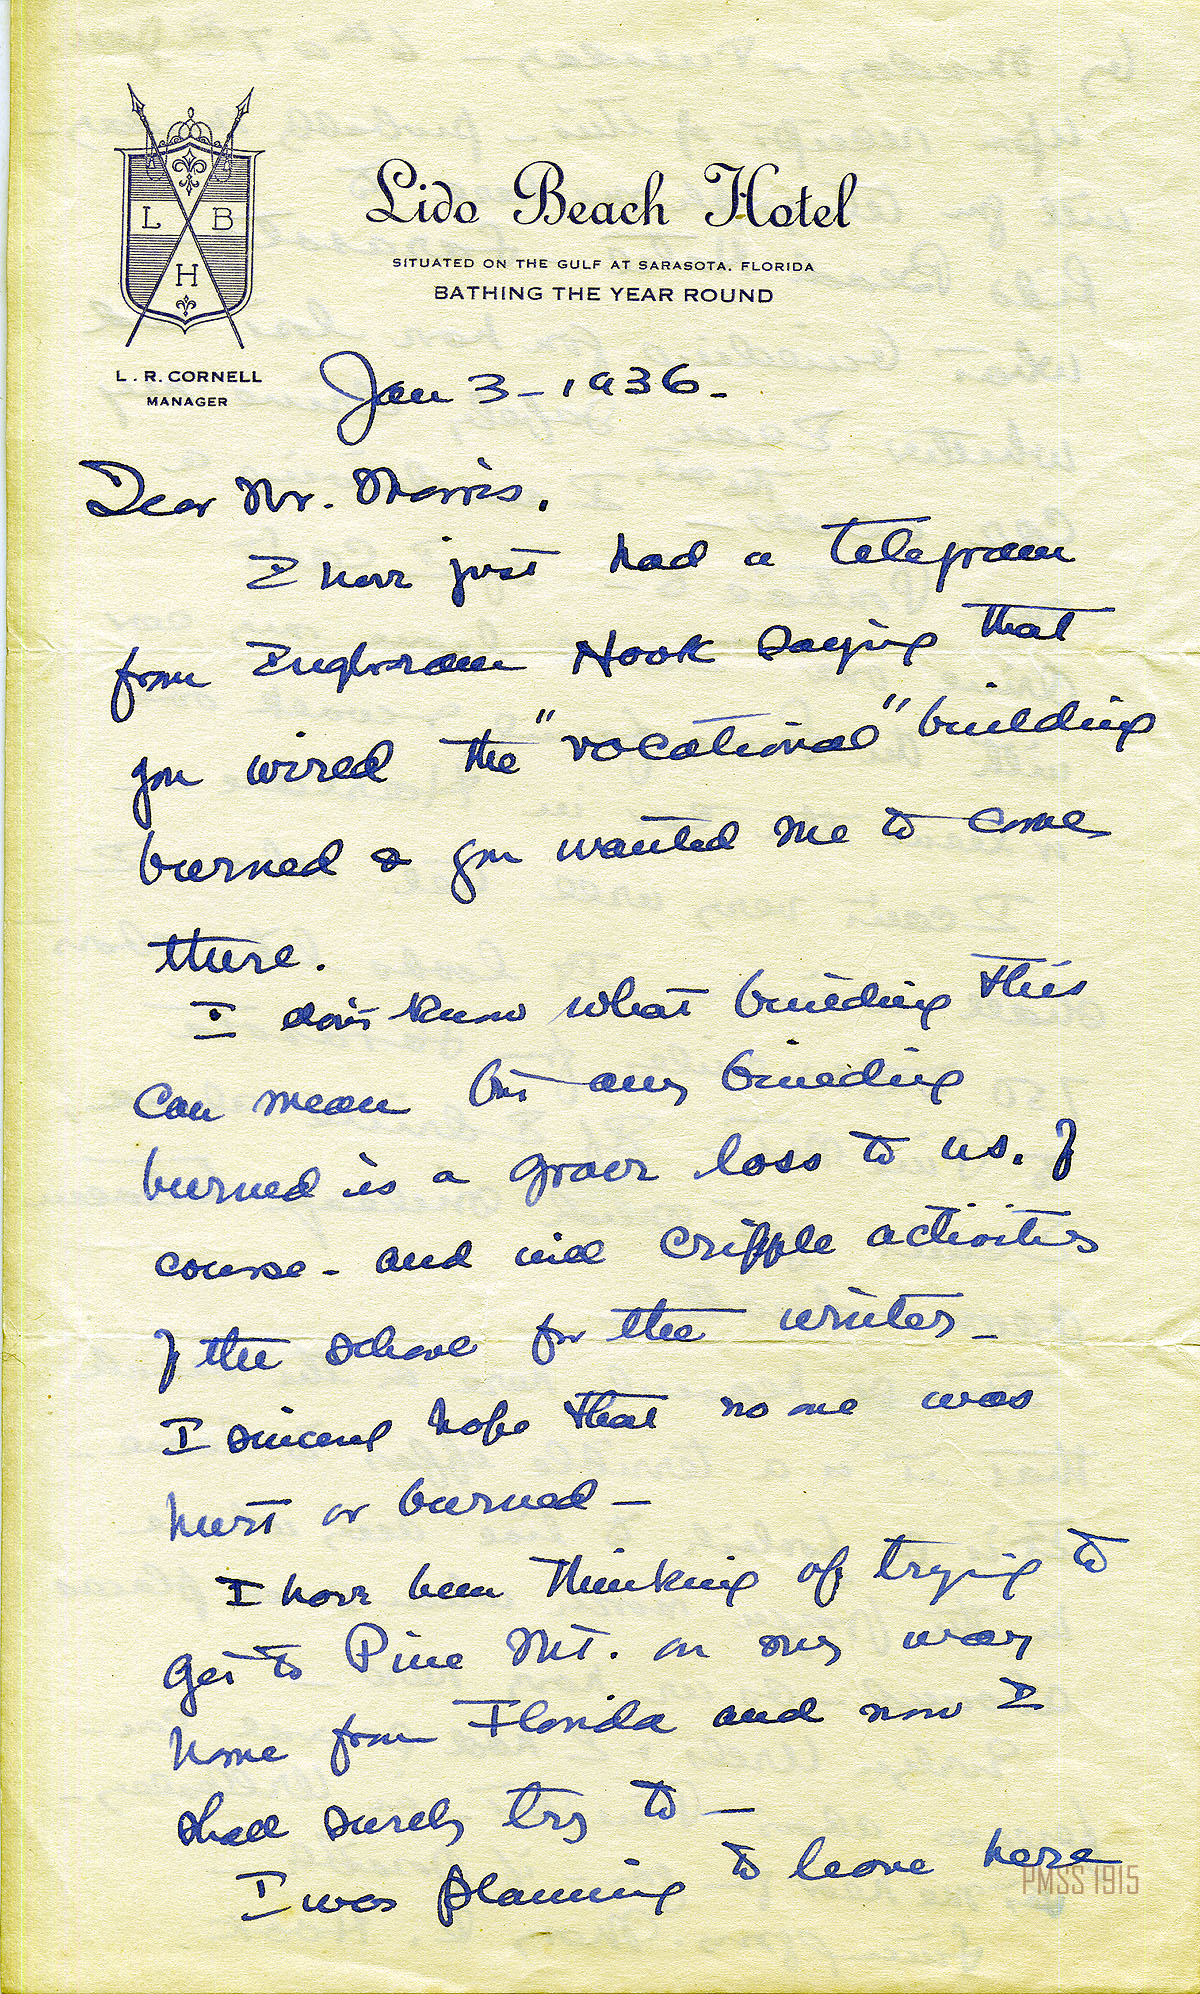 L B
H
Lido Beach Hotel
SITUATED ON THE GULF AT SARASOTA, FLORIDA
BATHING THE YEAR ROUND
L. R. CORNELL
MANAGER
Jan 3 - 1936.
Dear Mr. Morris.
I have just had a telegram
from Ingham Hook saying that
you wired the "vocational" building
burned & you wanted me to come
there.
I don't know what building this
can mean but any building
burned is a great loss to us. of
course - and will cripple activities
of the school for the winter -
I sincerely hope that no one was
hurt or burned -
I have been thinking of trying to
get to Pine Mt. on my way
home from Florida and now I
shall surely try to -
I was planning to leave here
PMSS 1915